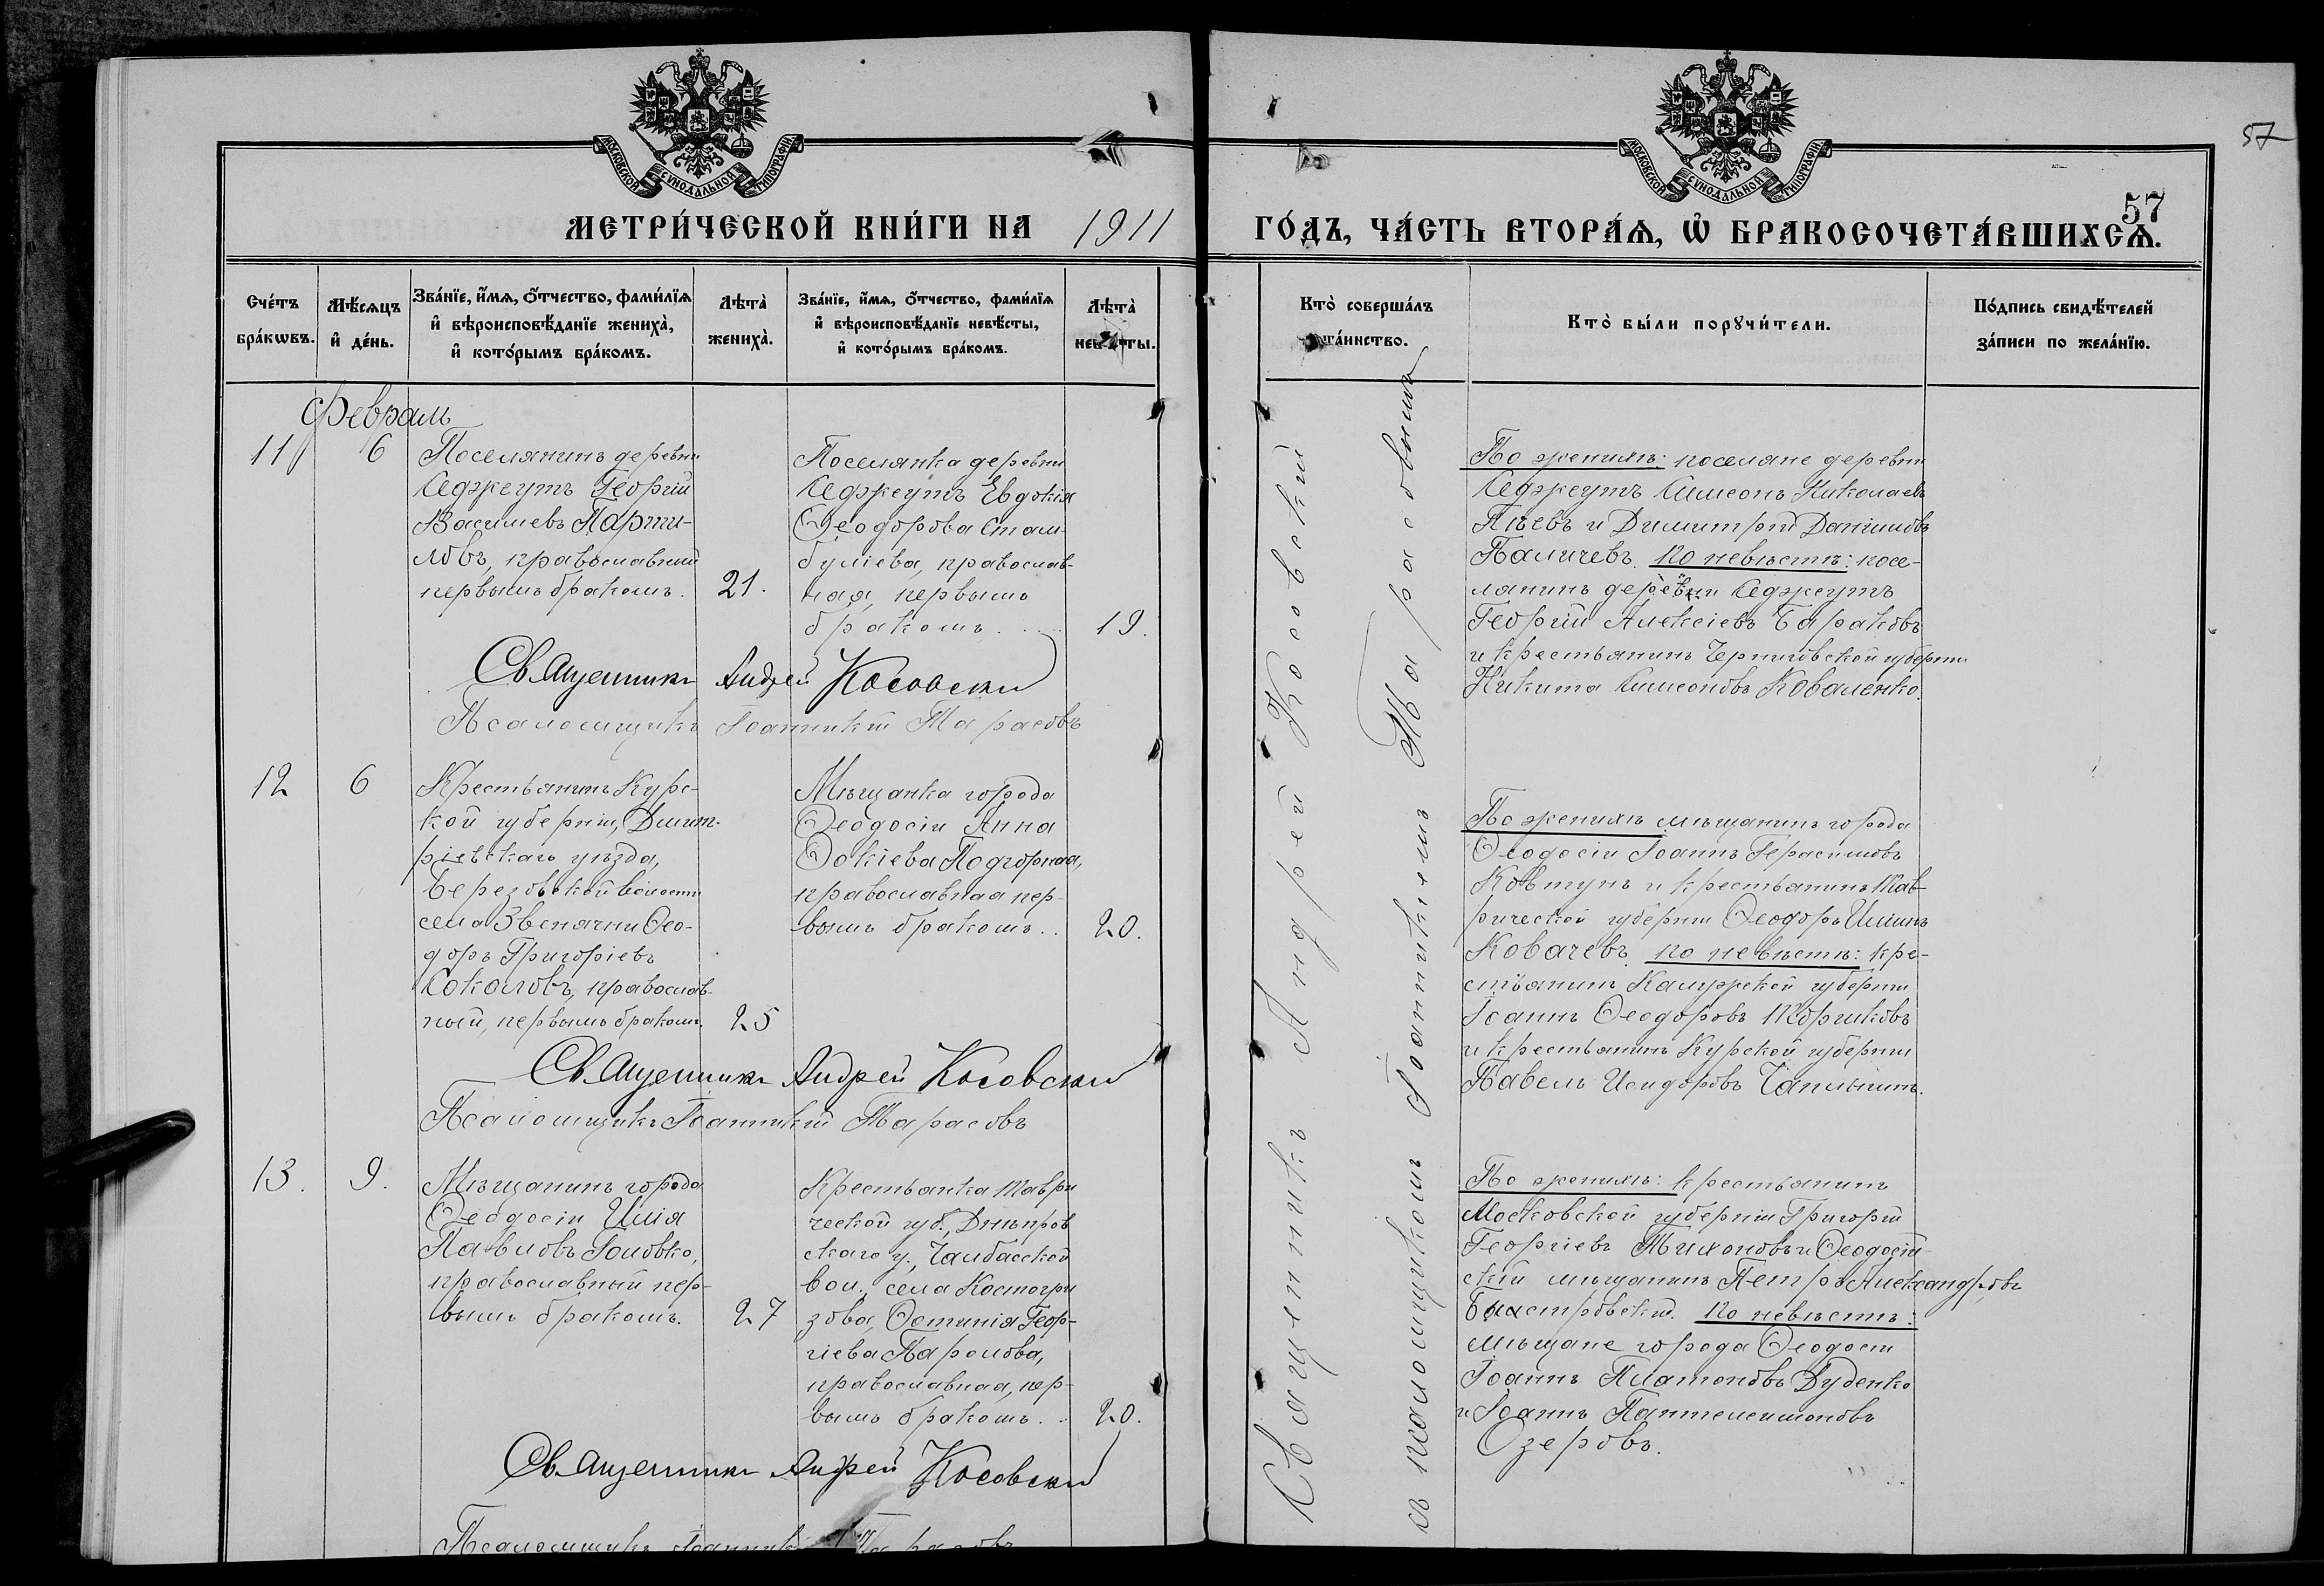 57
МОСКОВСКОЙ СѴНОДАЛЬНОЙ ТИПОГРАФІИ
МОСКОВСКОЙ СѴНОДАЛЬНОЙ ТИПОГРАФІИ
57
МЕТРИ́ЧЕСКОЙ КНИ́ГИ НА 1911 ГО́ДЪ, ЧА́СТЬ ВТОРА́Ѧ, Ѡ҆ БРАКОСОЧЕТА́ВШИХСѦ.
Сче́тъ
бра́кѡвъ.
Мѣ́сяцъ
и҆ де́нь.
Зва́нїе, и҆́мѧ, о҆́тчество, фами́лїѧ
и҆ вѣроисповѣ́данїе жениха̀,
и҆ кото́рымъ бра́комъ.
Лѣта̀
жениха̀.
Зва́нїе, и҆́мѧ, о҆́тчество, фами́лїѧ
и҆ вѣроисповѣ́данїе невѣ́сты,
и҆ кото́рымъ бра́комъ.
Лѣта̀
невѣ́сты.
Кто̀ соверша́лъ
та́инство.
Кто̀ бы́ли порꙋчи́тели.
По́дпись свидѣ́телей
за́писи по жела́нїю.
Февраль
11 6
Поселянинъ деревни
Седжеутъ Георгій
Васильевъ Парти-
ловъ, православный
первымъ бракомъ.
21.
Поселянка деревни
Седжеутъ Евдокія
Ѳеодорова Стам-
буліева, православ-
ная, первымъ
бракомъ....
19.
Священникъ Андрей Косовскій
Псаломщикъ Іоанникій Тарасовъ
По женихѣ: поселяне деревни
Седжеутъ Симеонъ Николаевъ
и Димитрій Даніиловъ
Паличевъ. по невѣстѣ: посе-
лянинъ деревни Седжеутъ
Георгій Алексіевъ Бараковъ
и крестьянинъ Черниговской губерніи
Никита Симеоновъ Коваленко.
12 6
Крестьянинъ Курс-
кой губерніи, Димит-
ріевскаго уѣзда,
Березовской волости
села Звенячки Ѳео-
доръ Григоріевъ
Соколовъ, православ-
ный, первымъ бракомъ.
25
Мѣщанка города
Ѳеодосіи Анна
Ѳокіева Подгорная,
православная пер-
вымъ бракомъ..
20.
Священникъ Андрей Косовскій
Псаломщикъ Іоанникій Тарасовъ
По женихѣ мѣщанинъ города
Ѳеодосіи Іоаннъ Герасимовъ
Ковтунъ и крестьянинъ Тав-
рической губерніи Ѳеодоръ Ильинъ
Ковачевъ. по невѣстѣ: кре-
стьянинъ Калужской губерніи
Іоаннъ Ѳеодоровъ Торшковъ
и крестьянинъ Курской губерніи
Павелъ Исидоровъ Чаплыгинъ.
13. 9.
Мѣщанинъ города
Ѳеодосіи Илія
Павловъ Головко,
православный пер-
вымъ бракомъ.
27
Крестьянка Таври
ческой губ., Днѣпров
скаго у., Чалбасской
вол., села Костогры
зова, Ѳотинія Геор-
гіева Паролова,
православная, пер-
вымъ бракомъ..
20.
Священникъ Андрей Косовскій
Псаломщикъ Іоанникій Тарасовъ
По женихѣ: крестьянинъ
Московской губерніи Григорій
Георгіевъ Тихоновъ и Ѳеодосій-
скій мѣщанинъ Петръ Александровъ
По невѣстѣ:
мѣщане города Ѳеодосіи
Іоаннъ Платоновъ Дуденко
и Іоаннъ Пантелеимоновъ
Озеровъ.
Священникъ Андрей Косовскій
съ псаломщикомъ Іоанникіемъ Тарасовымъ